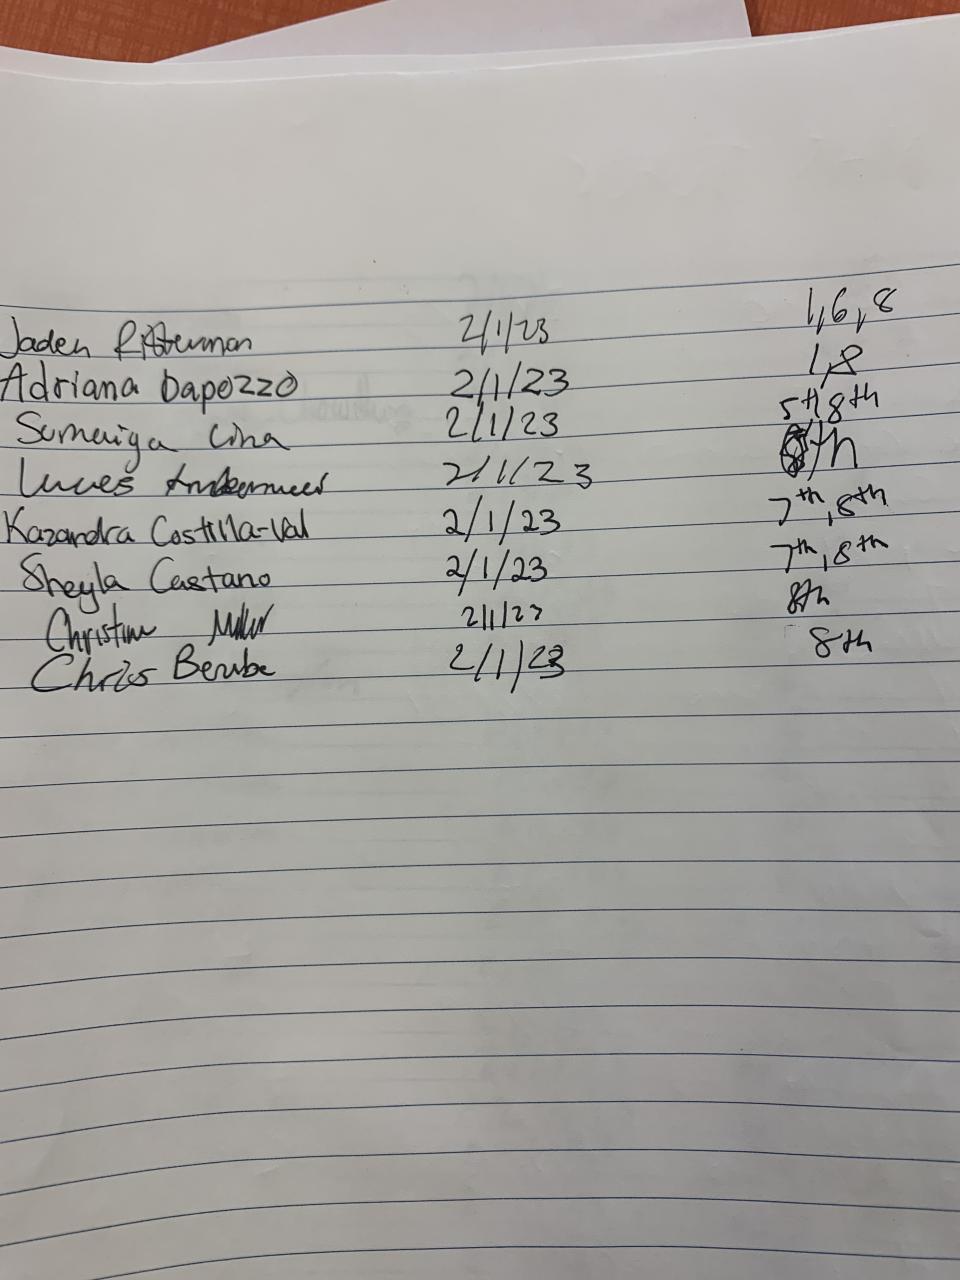 Jaden Ritterman 2/1/23 1,6,8
Adriana Dapozzo 2/1/23 1,8
Sumaiya 2/1/23 5th, 8th
2/1/23 8th
Kazandra Castilla-Val 2/1/23 7th, 8th
Sheyla Castano 2/1/23 7th, 8th
Christine Miller 2/1/23 8th
Chris Berube 2/1/23 8th